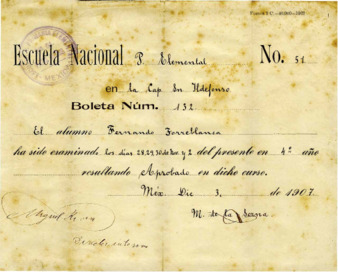 Escuela Nacional P. Elemental No. 51
en la Cap. Sn. Ildefonso
Boleta Núm. 132
El alumno Fernando Torreblanca
ha sido examinado los días 28, 29, 30 de Nov. y 2 del presente en 4º año
resultando Aprobado en dicho curso.
Méx. Dic 3, de 1907
M. de la